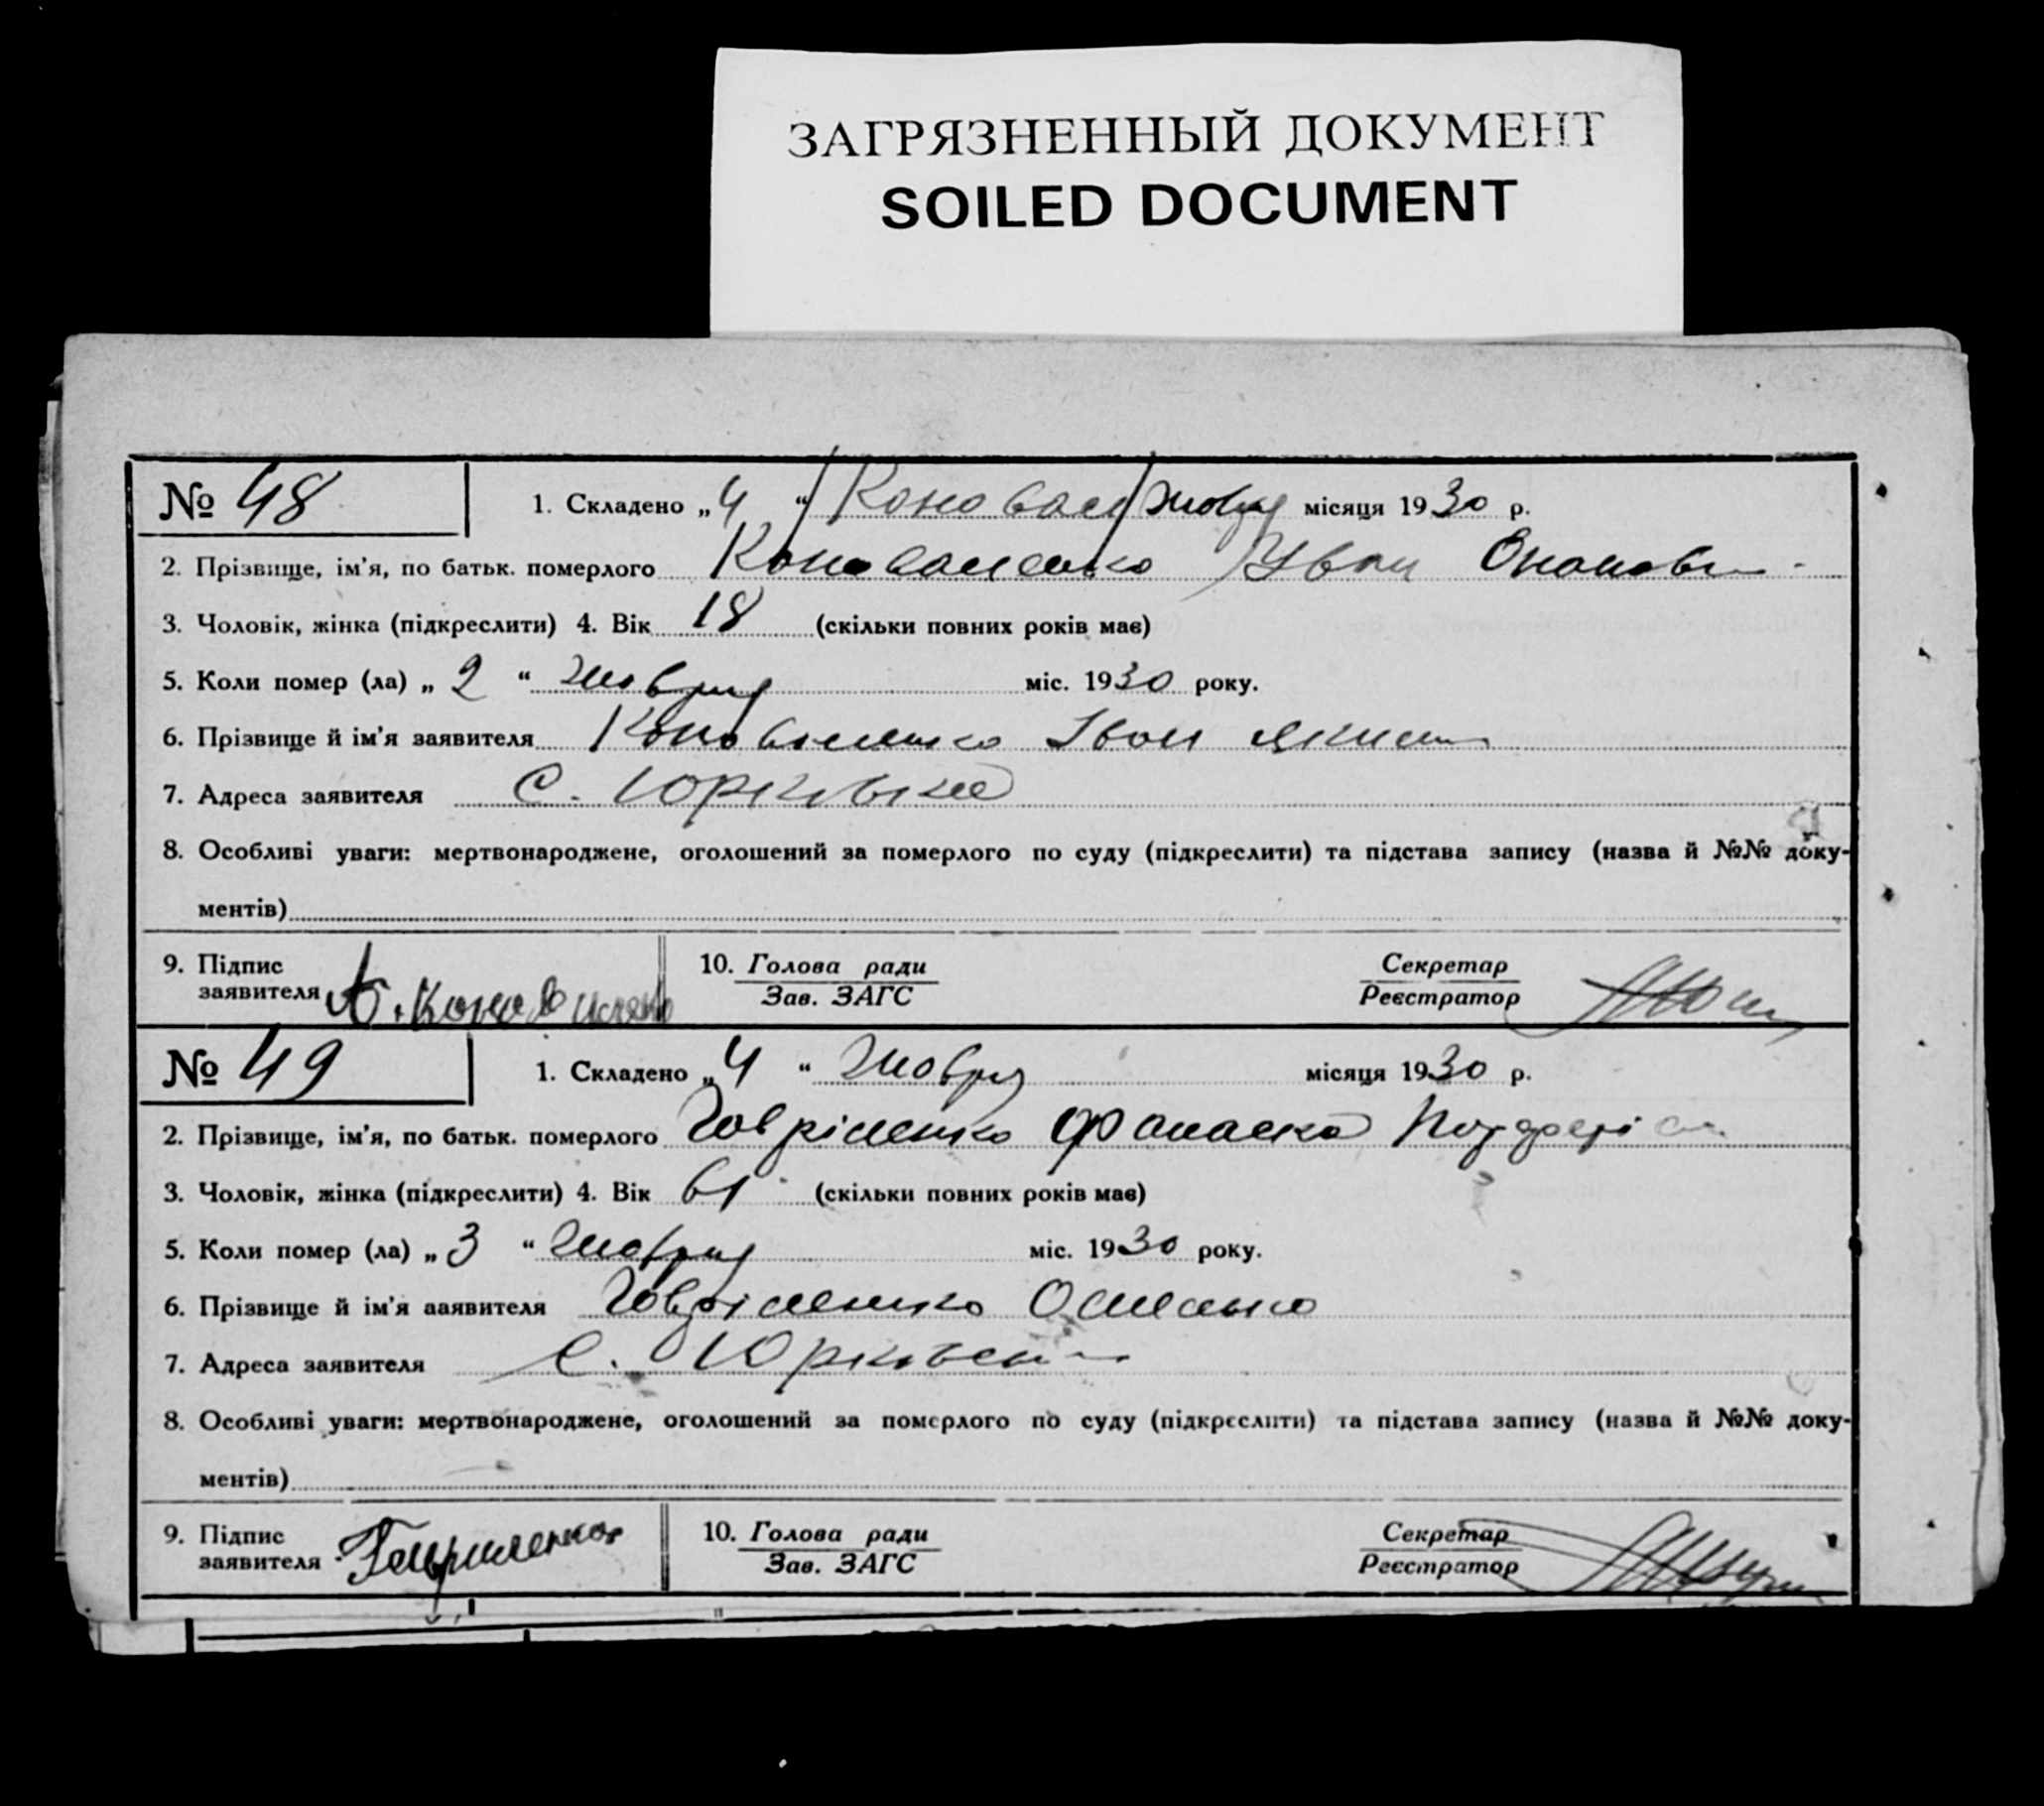 ЗАГРЯЗНЕННЫЙ ДОКУМЕНТ
SOILED DOCUMENT
№ 48
1. Складено „4“ /Коновал/ жовтня місяця 1930 р.
2. Прізвище, ім'я, по батьк. померлого Коноваленко Іван
3. Чоловік, жінка (підкреслити) 4. Вік 18 (скільки повних років має)
5. Коли помер (ла) „2“ жовтня міс. 1930 року.
6. Прізвище й ім'я заявителя Коноваленко Іван
7. Адреса заявителя с. Юрківка
8. Особливі уваги: мертвонароджене, оголошений за померлого по суду (підкреслити) та підстава запису (назва й №№ доку-
ментів)
9. Підпис заявителя Коноваленко
10. Голова ради
Зав. ЗАГС
Секретар
Реєстратор
№ 49
1. Складено „4“ жовтня місяця 1930 р.
2. Прізвище, ім'я, по батьк. померлого Говріленко
3. Чоловік, жінка (підкреслити) 4. Вік 61 (скільки повних років має)
5. Коли помер (ла) „3“ жовтня міс. 1930 року.
6. Прізвище й ім'я ааявителя Говріленко
7. Адреса заявителя с. Юрківка
8. Особливі уваги: мертвонароджене, оголошений за померлого по суду (підкреслити) та підстава запису (назва й №№ доку-
ментів)
9. Підпис заявителя Гавриленко
10. Голова ради
Зав. ЗАГС
Секретар
Реєстратор